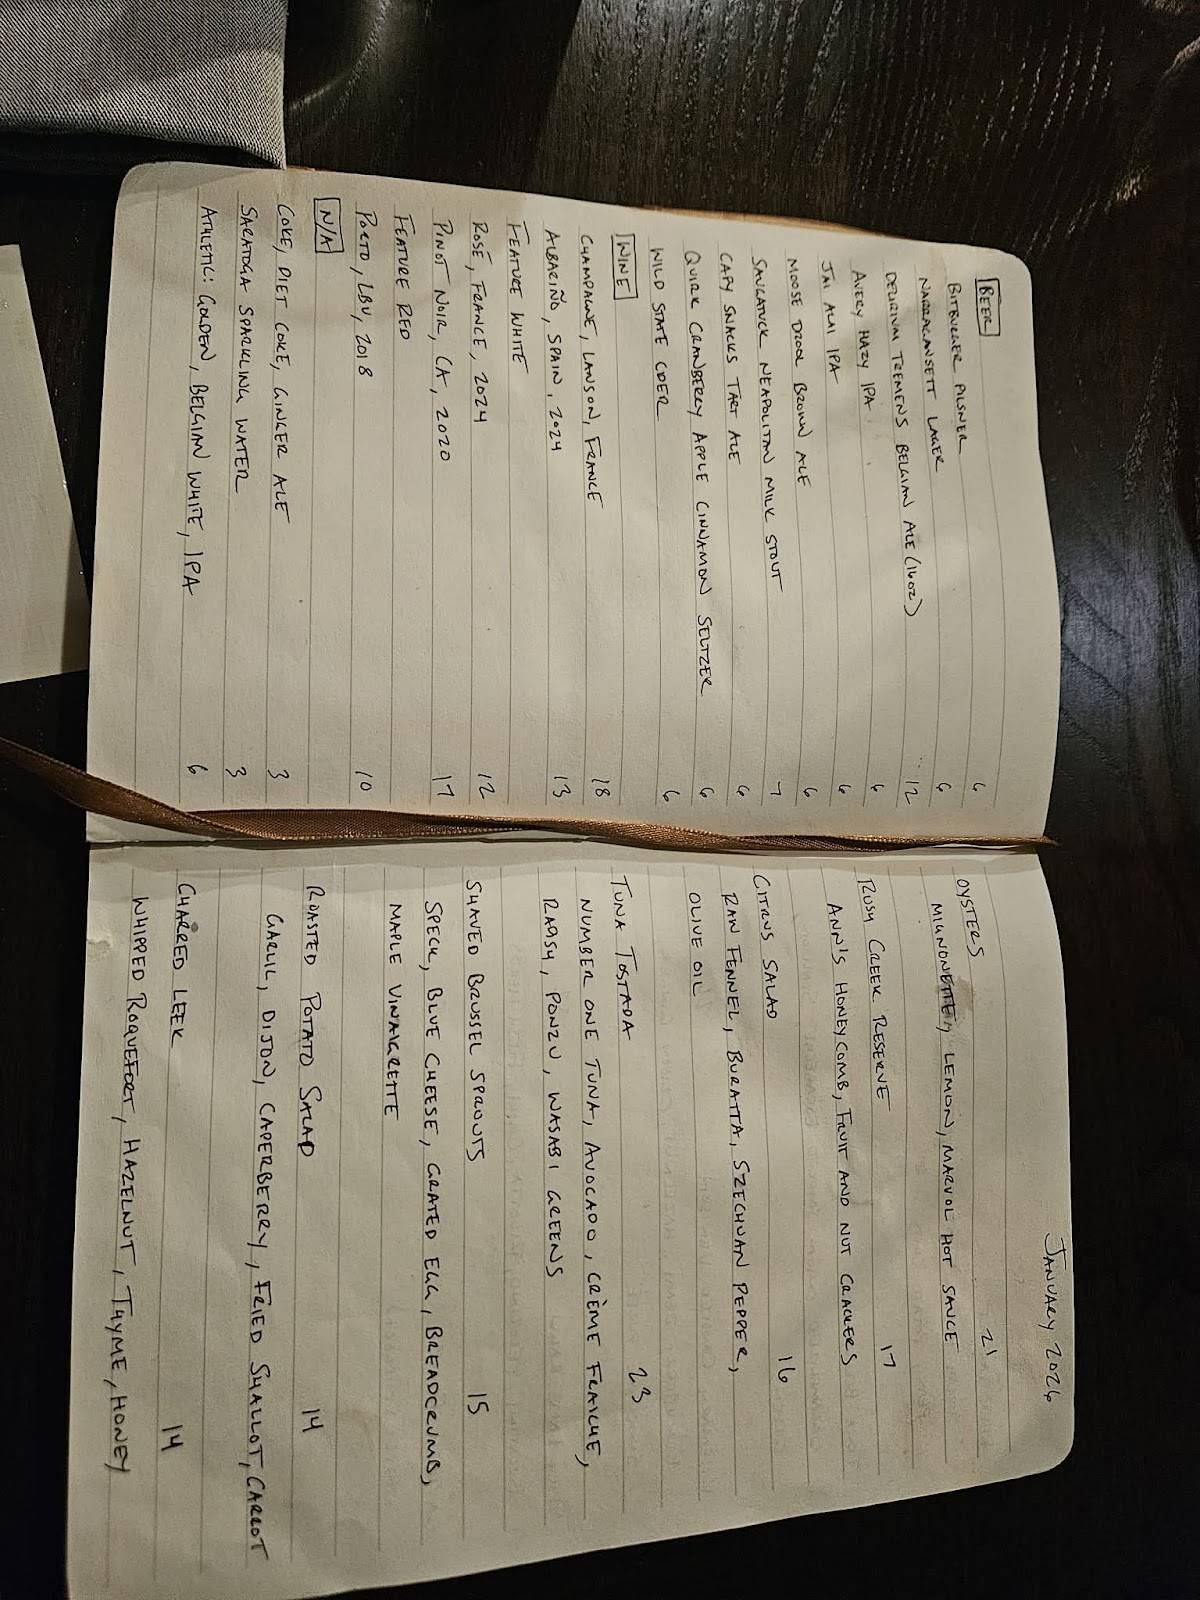 BEER
BITBURGER PILSNER 6
NARRAGANSETT LAGER 6
DELIRIUM TREMENS BELGIAN ALE (16OZ) 12
AVERY HAZY IPA 6
JAI ALAI IPA 6
MOOSE DROOL BROWN ALE 6
SAUGATUCK NEAPOLITAN MILK STOUT 7
CAPY SNACKS TART ALE 6
QUIRK CRANBERRY APPLE CINNAMON SELTZER 6
WILD STATE CIDER 6
WINE
CHAMPAGNE, LANSON, FRANCE 18
ALBARIÑO, SPAIN, 2024 13
FEATURE WHITE
ROSÉ, FRANCE, 2024 12
PINOT NOIR, CA, 2020 17
FEATURE RED
PORTO, LBV, 2018 10
N/A
COKE, DIET COKE, GINGER ALE 3
SARATOGA SPARKLING WATER 3
ATHLETIC: GOLDEN, BELGIAN WHITE, IPA 6
JANUARY 2026
OYSTERS 21
MIGNONETTE, LEMON, MARVOL HOT SAUCE
RUSH CREEK RESERVE 17
ANN'S HONEYCOMB, FRUIT AND NUT CRACKERS
CITRUS SALAD 16
RAW FENNEL, BURATTA, SZECHUAN PEPPER,
OLIVE OIL
TUNA TOSTADA 23
NUMBER ONE TUNA, AVOCADO, CRÈME FRAICHE,
RADISH, PONZU, WASABI GREENS
SHAVED BRUSSEL SPROUTS 15
SPECK, BLUE CHEESE, GRATED EGG, BREADCRUMB,
MAPLE VINAIGRETTE
ROASTED POTATO SALAD 14
GARLIC, DIJON, CAPERBERRY, FRIED SHALLOT, CARROT
CHARRED LEEK 14
WHIPPED ROQUEFORT, HAZELNUT, THYME, HONEY